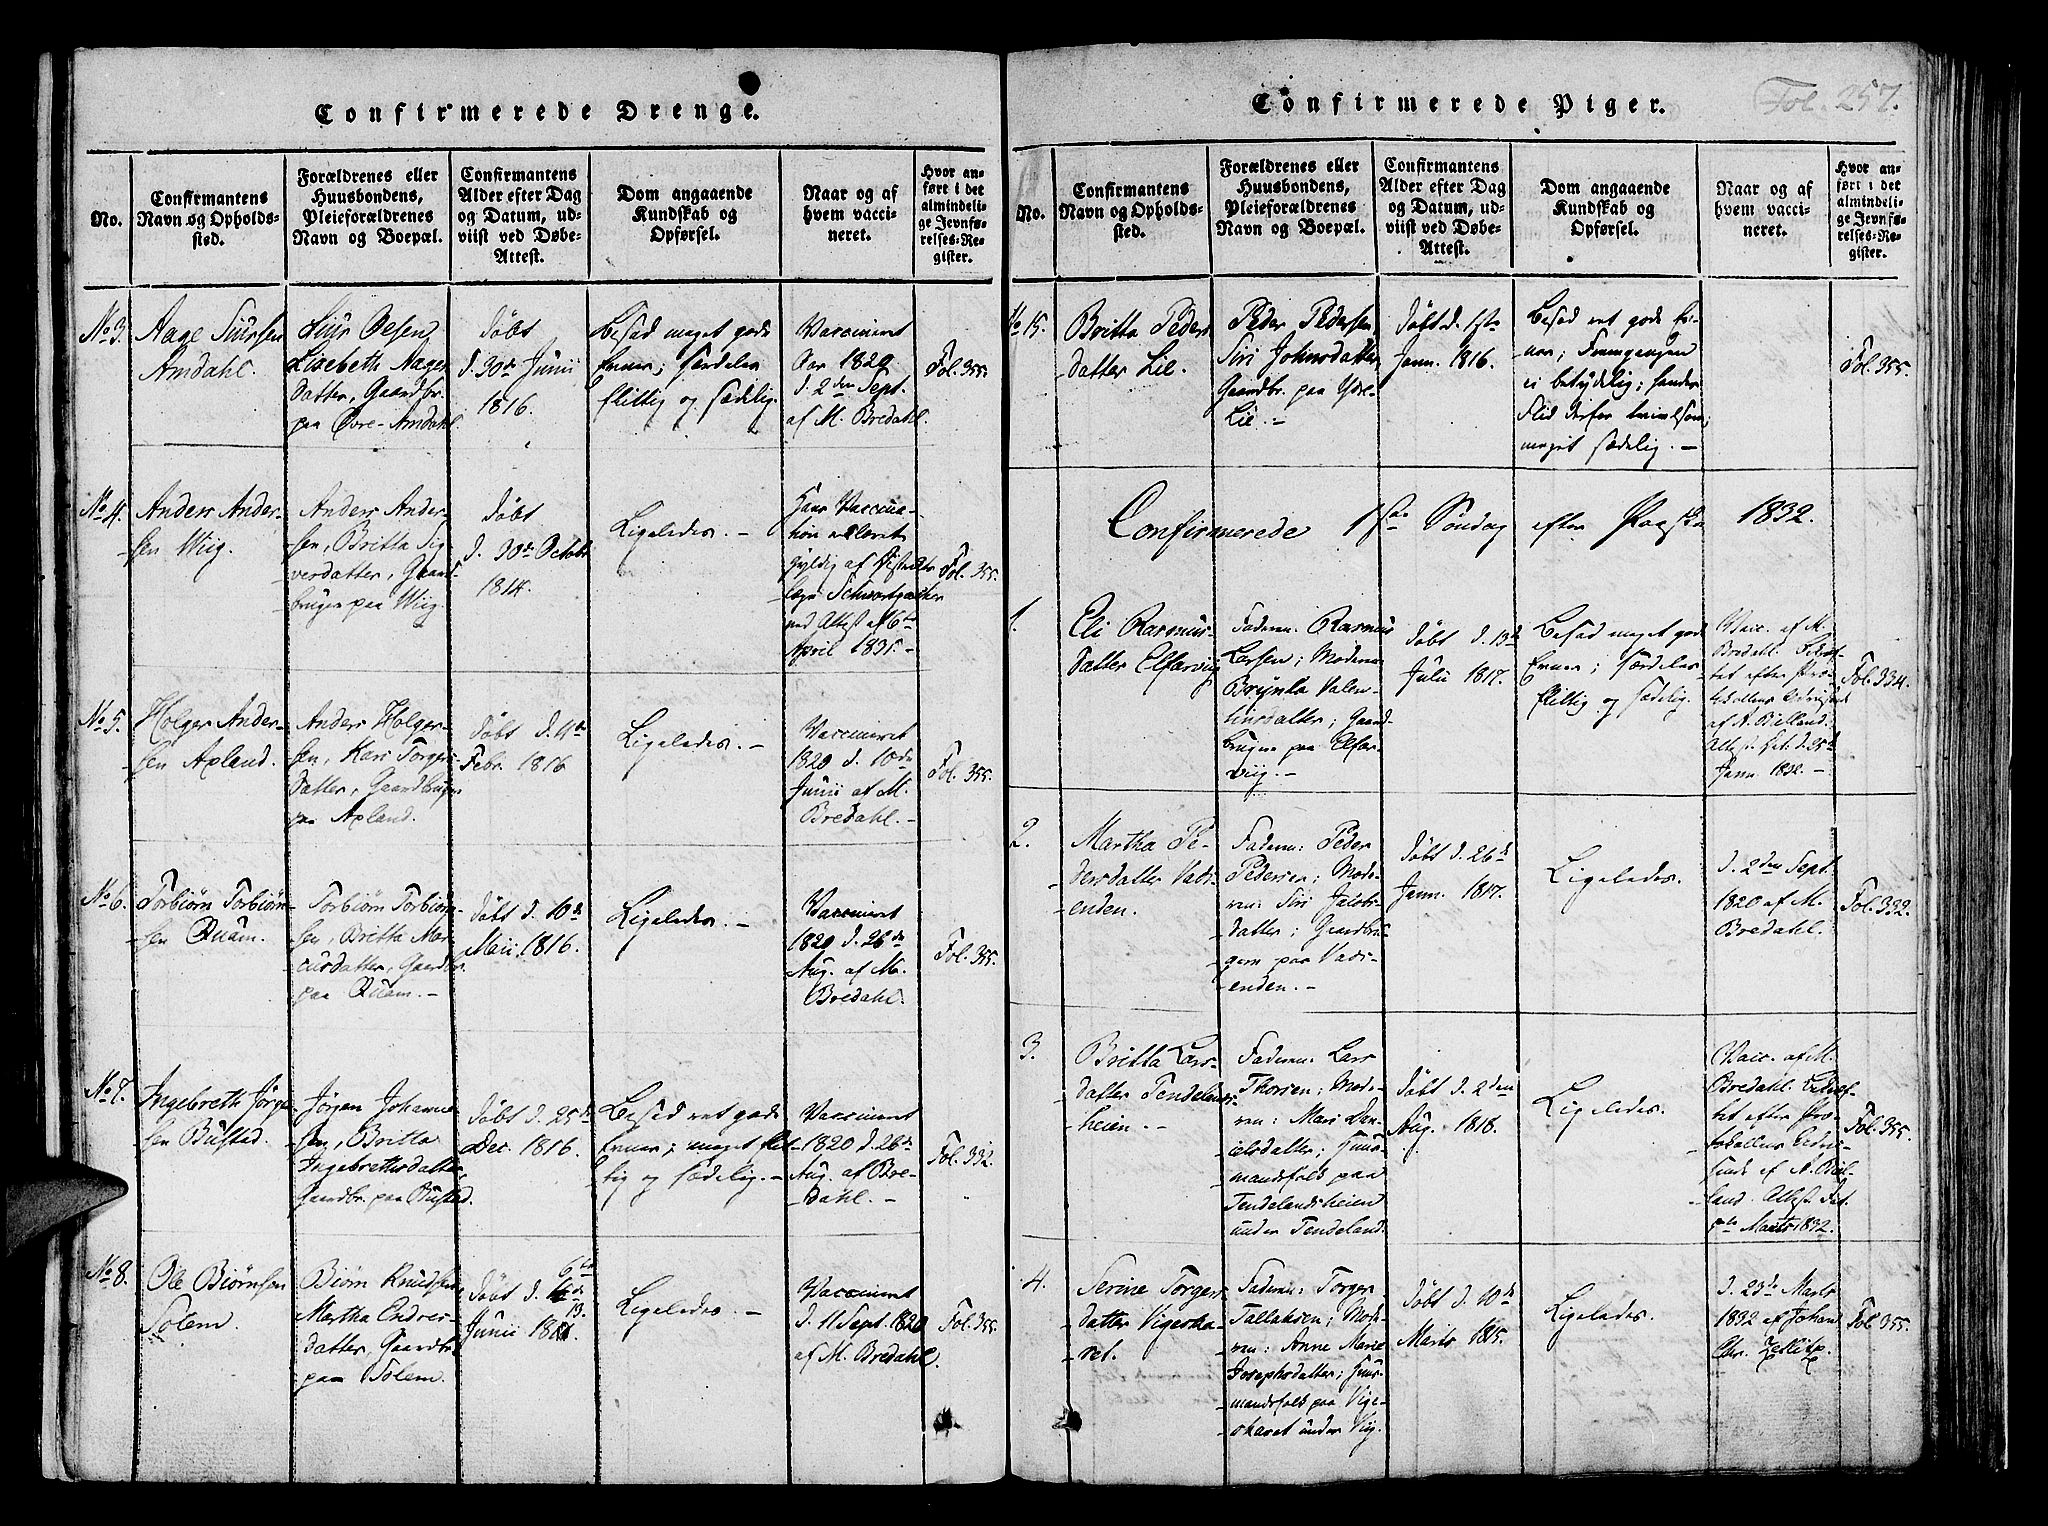 Confirmerede Drenge.
No.
Confirmantens
Navn og Opholds-
sted.
Forældrenes eller
Huusbondens,
Pleieforældrenes
Navn og Boepæl.
Confirmantens
Alder efter Dag
og Datum, ud-
viist ved Døbe-
Attest.
Dom angaaende
Kundskab og
Opførsel.
Naar og af
hvem vacci-
neret.
Hvor an-
ført i det
almindeli-
ge Jevnfø-
relses-Re-
gister.
No 3.
Aage Siursen
Amdahl.
Siur Olesen
Lisebeth Aages
datter, Gaardbr.
paa Øvre-Amdahl.
Døbt
d. 30te Junii
1816.
Besad meget gode
Evner; særdeles
flittig og sædelig.
Vaccineret
Aar 1820
d. 2den Sept.
af M. Bredahl.
Fol. 355.
No 4.
Anders Ander-
sen Wiig.
Anders Ander-
sen, Britta Sig
verdatter, Gaard-
bruger paa Wiig.
Døbt
d. 30te Octobr
1814.
Ligeledes. -
Hans Vaccina-
tion erklæret
gyldig af District
læge
med Attest af 16de
April 1831. -
Fol. 355.
No 5.
Holger Ander-
sen Axland.
Anders Holger-
sen, Kari Torgers
datter, Gaardbruger
paa Axland.
Døbt d. 4de
Febr. 1816
Ligeledes. -
Vaccineret
1820 d. 10de
Junii af M.
Bredahl. -
Fol. 355.
No 6.
Torbiørn Torbiørn-
sen Ruam.
Torbiørn Torbiørn-
sen, Britta Mar-
cusdatter, Gaardbr.
paa Ruam. -
Døbt d. 10de
Maii 1816.
Ligeledes. -
Vaccineret
1820 d. 26de
Aug. af M.
Bredahl.
Fol. 355.
No 7.
Ingebreth Jørgen-
sen Bustad.
Jørgen Johanne-
sen, Britta
Ingebrethsdatter,
Gaardbr. paa Bustad.
Døbt d. 25de
Dec. 1816.
Besad ret gode
Evner; meget flit-
tig og sædelig. -
Vaccineret
1820 d. 26de
Aug. af Bre-
dahl. -
Fol. 332.
No 8.
Ole Biørnsen
Solem.
Biørn Knudsen
Martha Endres-
datter, Gaardbr.
paa Solem.
Døbt d. 6te
Junii 1813.
Ligeledes. -
Vaccineret
d. 11 Sept. 1820
af M. Bredahl.
Fol. 355.
Confirmerede Piger.
Fol. 257.
No.
Confirmantens
Navn og Opholds-
sted.
Forældrenes eller
Huusbondens,
Pleieforældrenes
Navn og Boepæl.
Confirmantens
Alder efter Dag
og Datum, ud-
viist ved Døbe-
Attest.
Dom angaaende
Kundskab og
Opførsel.
Naar og af
hvem vacci-
neret.
Hvor an-
ført i det
almindeli-
ge Jevnfø-
relses-Re-
gister.
No 15.
Britta Peders
datter Lie.
Peder Pedersen,
Siri Johnsdatter,
Gaardbr. paa Ydre-
Lie. -
Døbt d. 1ste
Jann. 1816.
Besad ret gode Ev-
ner; Fremgangen
ei betydelig; hendes
Flid derfor tvivlsom;
meget sædelig. -
Fol. 355.
Confirmerede 1ste Søndag efter Paaske 1832.
1.
Eli Rasmus-
datter Elfarvig
Faderen: Rasmus
Larsen; Moderen
Brynla Valen-
tinsdatter; Gaard-
brugere paa Elfar-
viig. -
Døbt d. 13de
Julii 1817.
Besad meget gode
Evner; særdeles
flittig og sædelig.
Vacc. af M.
Bredahl.
tet efter Pro-
tocollens Udviisende
af A. Bielland.
Attest. dat. d. 25de
Jann. 1832. -
Fol. 334.
2.
Martha Pe-
dersdatter Vads-
enden.
Faderen: Peder
Pedersen; Mode-
ren: Siri Jacobs-
datter; Gaardbru-
gere paa Vads-
enden. -
Døbt d. 26de
Jann. 1817.
Ligeledes.
d. 2den Sept.
1820 af M.
Bredahl.
Fol. 332.
3.
Britta Lars
datter Tendelands-
heien. -
Faderen: Lars
Thorsen; Mode-
ren: Mari Dan-
ielsdatter; Huus-
mandsfolk paa
Tendelandsheien
under Tendeland.
Døbt d. 2den
Aug. 1818.
Ligeledes.
Vacc. af M.
Bredahl.
tet efter Pro-
tokollens Udvi-
sende af A. Biel-
land. Attest. Dat.
Marts 1832.
Fol. 355.
4.
Serine Torgers
datter Vigeska-
ret.
Faderen: Torger
Tallaksen; Mode-
ren: Anne Marie
Josephsdatter; Huus-
mandsfolk paa Vige-
skaret under Viig.
Døbt d. 10de
Marts 1815.
Ligeledes.
d. 23de Marts
1832 af Johan
Chr. Zetlitz.
Fol. 355.